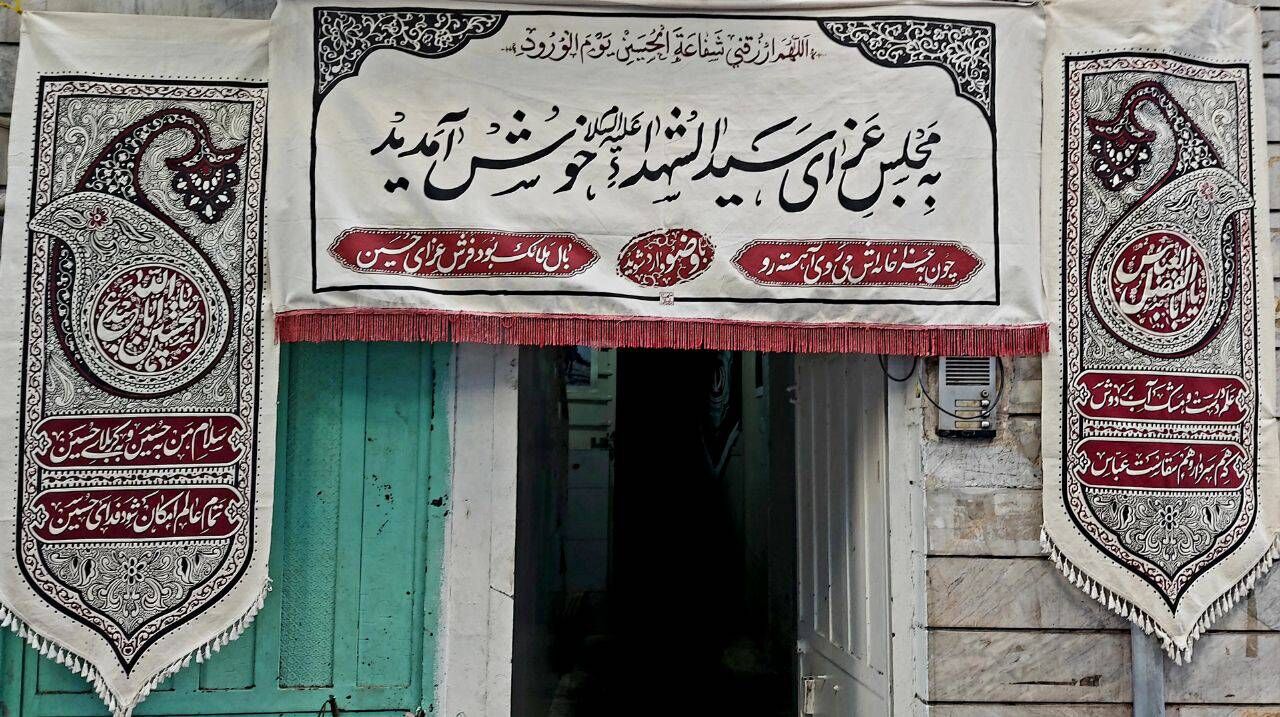 اللهم ارزقنی شفاعة الحسین یوم الورود
به مجلس عزای سیدالشهداء علیه السلام خوش آمدید
چون به عزاخانه‌اش می‌روی آهسته رو
با وضو وارد شوید
بال ملائک بود فرش عزای حسین
یا اباالفضل العباس
علم به دست و مشک آب به دوش
که هم سردار و هم سقاست عباس
یا اباعبدالله الحسین
سلام من به حسین و به کربلای حسین
تمام عالم امکان شود فدای حسین